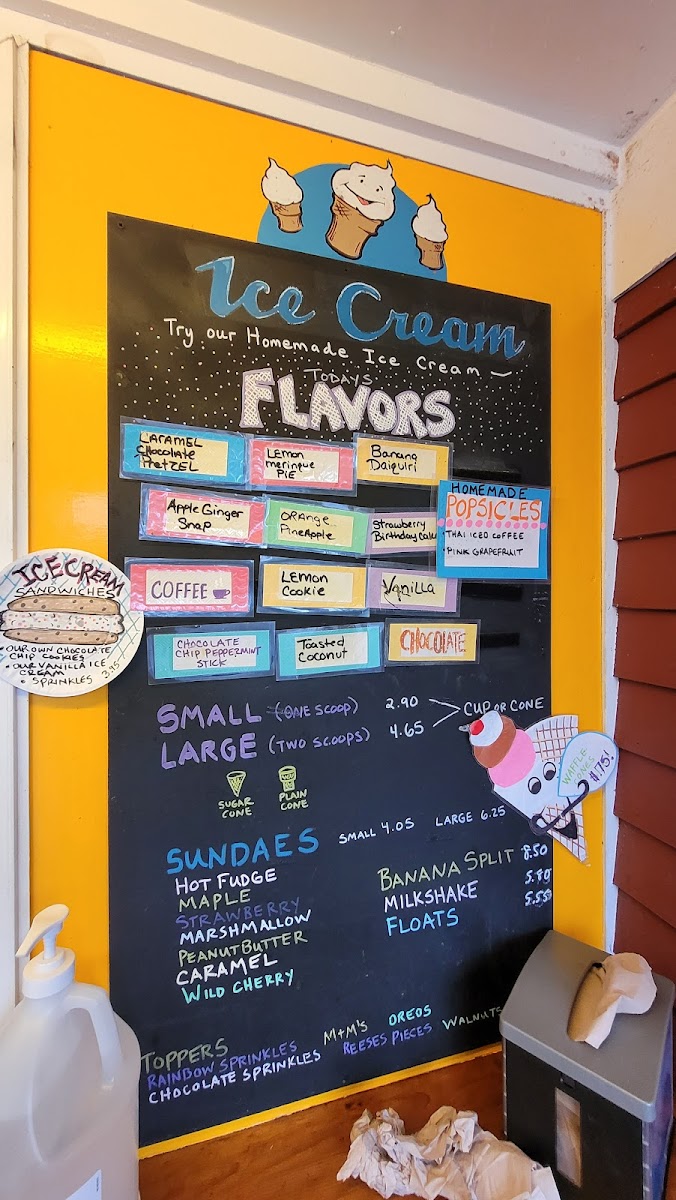 Ice Cream
Try our Homemade Ice Cream
TODAYS
FLAVORS
CARAMEL
Chocolate
PretZEL
Lemon
meringue
PIE
Banana
Daiquiri
Apple Ginger
Snap
ORAnge
PineApple
Strawberry
Birthday Cake
HOMEMADE
POPSICLES
• THAI ICED COFFEE
• PINK GRAPEFRUIT
COFFEE
Lemon
Cookie
Vanilla
CHOCOLATE
CHIP PEPPERMINT
STICK
Toasted
Coconut
CHOCOLATE
ICE CREAM
SANDWICHES
• OUR OWN CHOCOLATE
CHIP COOKIES
• OUR VANILLA ICE
CREAM
• SPRINKLES 3.95
SMALL (ONE SCOOP) 2.90
LARGE (TWO SCOOPS) 4.65
CUP OR CONE
SUGAR
CONE
PLAIN
CONE
WAFFLE
CONES
$1.75!
SUNDAES SMALL 4.05 LARGE 6.25
HOT FUDGE
MAPLE
STRAWBERRY
MARSHMALLOW
PEANUT BUTTER
CARAMEL
WILD CHERRY
BANANA SPLIT 8.50
MILKSHAKE
FLOATS 5.55
TOPPERS
RAINBOW SPRINKLES
CHOCOLATE SPRINKLES
M+M'S
REESES PIECES
OREOS
WALNUTS